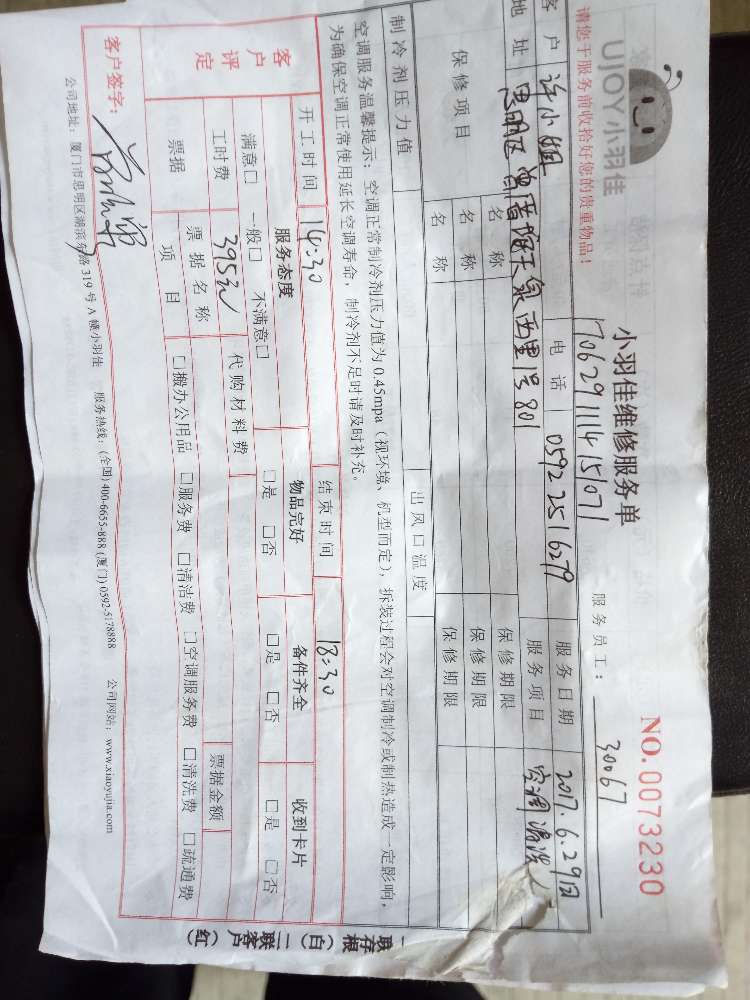 UJOY小羽佳
请您于服务前收拾好您的贵重物品!
小羽佳维修服务单
NO.0073230
170629111415071
服务员工: 30067
客户 许小姐 电话 0592 2516279 服务日期 2017.6.29日
地址 思明区 天泉西里1号801 服务项目 空调清洗
保修项目 名称 保修期限
名称 保修期限
名称 保修期限
制冷剂压力值 出风口温度
空调服务温馨提示:空调正常制冷剂压力值为0.45mpa(视环境、机型而定),拆装过程会对空调制冷或制热造成一定影响,
为确保空调正常使用延长空调寿命,制冷剂不足时请及时补充。
开工时间 14:30 结束时间 18:30
客户评定 服务态度 物品完好 备件齐全 收到卡片
满意□ 一般□ 不满意□ □是 □否 □是 □否 □是 □否
工时费 395元 代购材料费
票据 票据名称 票据金额
项目 □搬办公用品 □服务费 □清洁费 □空调服务费 □清洗费 □疏通费
客户签字:
公司地址:厦门市思明区湖滨东路319号A幢小羽佳 服务热线:(全国)400-6655-888 (厦门)0592-5178888 公司网站:www.xiaoyujia.com
一联存根(白)二联客户(红)